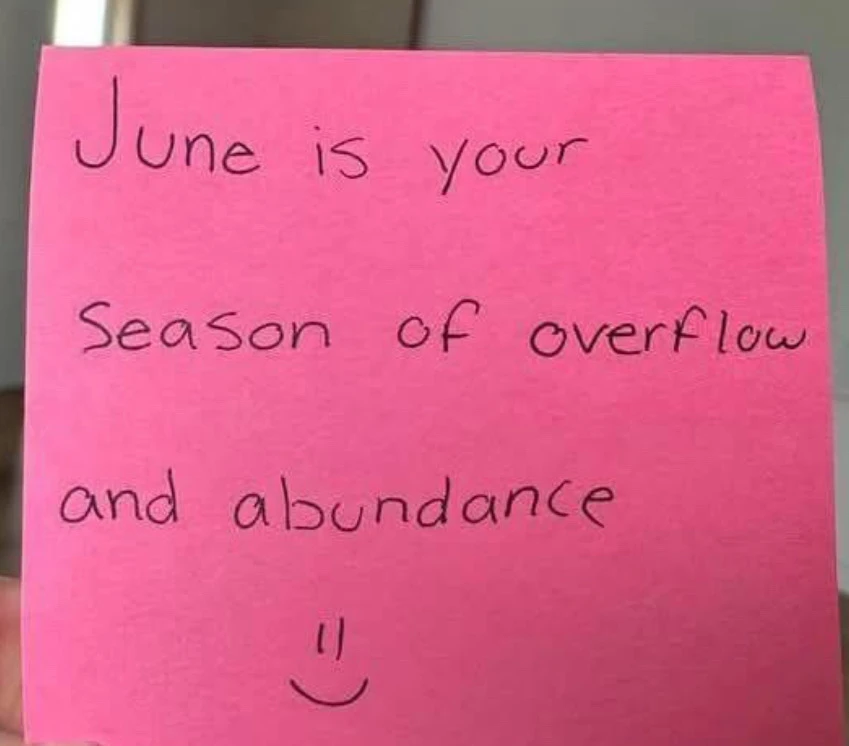 June is your
Season of overflow
and abundance